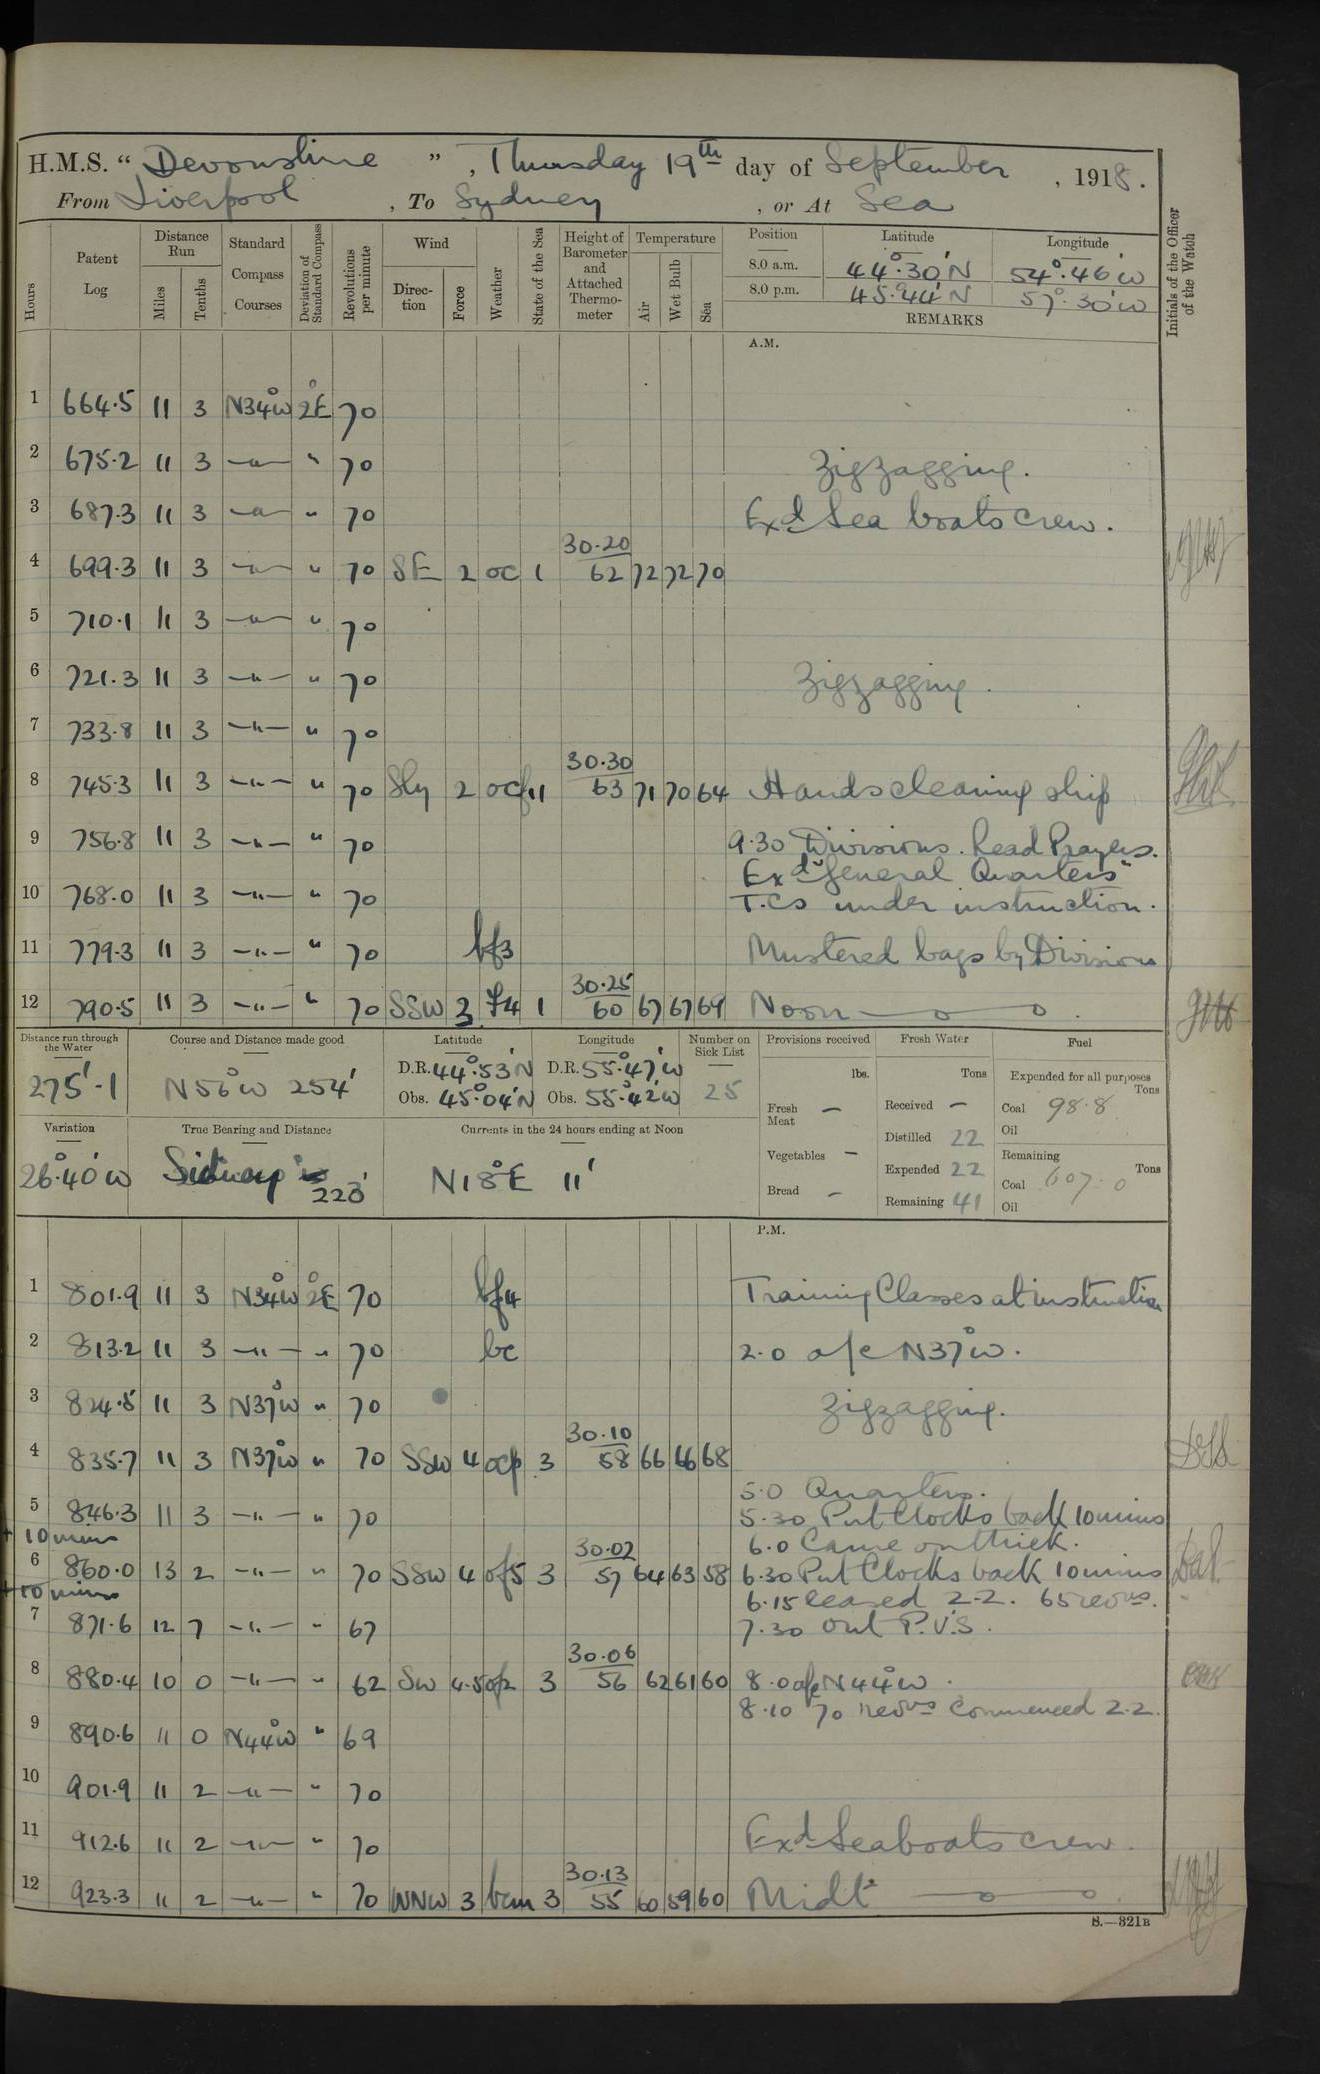 H.M.S. "Devonshire", Thursday 19th day of September, 1918.
From Liverpool, To Sydney, or At Sea
Hours
Patent Log
Distance Run
Miles
Tenths
Standard Compass Courses
Deviation of Standard Compass
Revolutions per minute
Wind
Direction
Force
Weather
State of the Sea
Height of Barometer and Attached Thermometer
Temperature
Air
Wet Bulb
Sea
Position Latitude Longitude
8.0 a.m. 44°.30'N 54°.46'W
8.0 p.m. 45.44'N 57°.30'W
REMARKS
Initials of the Officer of the Watch
A.M.
1 664.5 11 3 N34°W 2°E 70
2 675.2 11 3 —"— " 70 Zigzagging.
3 687.3 11 3 —"— " 70 Exd Sea boats crew.
4 699.3 11 3 —"— " 70 SE 2 oc 1 30.20 62 72 72 70
5 710.1 11 3 —"— " 70
6 721.3 11 3 —"— " 70 Zigzagging.
7 733.8 11 3 —"— " 70
8 745.3 11 3 —"— " 70 Sly 2 ocf 1 30.30 63 71 70 64 Hands cleaning ship
9 756.8 11 3 —"— " 70 9.30 Divisions. Read Prayers.
Exd "General Quarters"
10 768.0 11 3 —"— " 70 T.Cs under instruction.
11 779.3 11 3 —"— " 70 bf3 Mustered bags by Divisions
12 790.5 11 3 —"— " 70 SSW 3 f4 1 30.25 60 67 67 69 Noon
Distance run through the Water
275'.1
Course and Distance made good
N56°W 254'
Latitude
D.R. 44°.53'N
Obs. 45°.04'N
Longitude
D.R. 55°.47'W
Obs. 55°.42'W
Number on Sick List
25
Variation
26°.40'W
True Bearing and Distance
Sidney 223'
Currents in the 24 hours ending at Noon
N18°E 11'
Provisions received
lbs.
Fresh Meat —
Vegetables —
Bread —
Fresh Water
Tons
Received —
Distilled 22
Expended 22
Remaining 41
Fuel
Expended for all purposes
Tons
Coal 98.8
Oil
Remaining
Tons
Coal 607.0
Oil
P.M.
1 801.9 11 3 N34°W 2°E 70 bf4 Training Classes at instruction
2 813.2 11 3 —"— " 70 bc 2.0 a/c N37°W.
3 824.5 11 3 N37°W " 70 Zigzagging.
4 835.7 11 3 N37°W " 70 SSW 4 ocp 3 30.10 58 66 66 68
5.0 Quarters.
5 846.3 11 3 —"— " 70 5.30 Put Clocks back 10 mins
+ 10 mins 6.0 Came on thick.
6 860.0 13 2 —"— " 70 SSW 4 of5 3 30.02 57 64 63 58 6.30 Put Clocks back 10 mins
+ 10 mins 6.15 ceased Z.Z. 65 revns.
7 871.6 12 7 —"— " 67 7.30 out P.V.S.
8 880.4 10 0 —"— " 62 SW 4.5 of2 3 30.06 56 62 61 60 8.0 a/c N44°W.
8.10 70 revns Commenced Z.Z.
9 890.6 11 0 N44°W " 69
10 901.9 11 2 —"— " 70
11 912.6 11 2 —"— " 70 Exd Seaboats crew.
12 923.3 11 2 —"— " 70 WNW 3 bcm 3 30.13 55 60 59 60 Midt
S.—321B